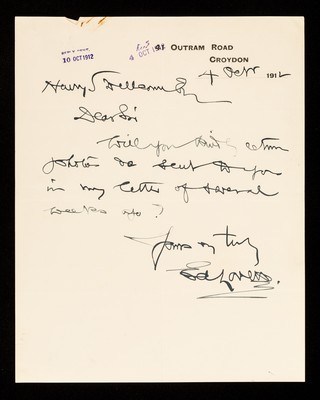 10 OCT 1912
4 OCT
41 OUTRAM ROAD
CROYDON
4 Octr 1912
Henry S Wellcome Esq
Dear Sir
Will you kindly return
photos as sent to you
in my letter of several
weeks ago?
Yours vy truly